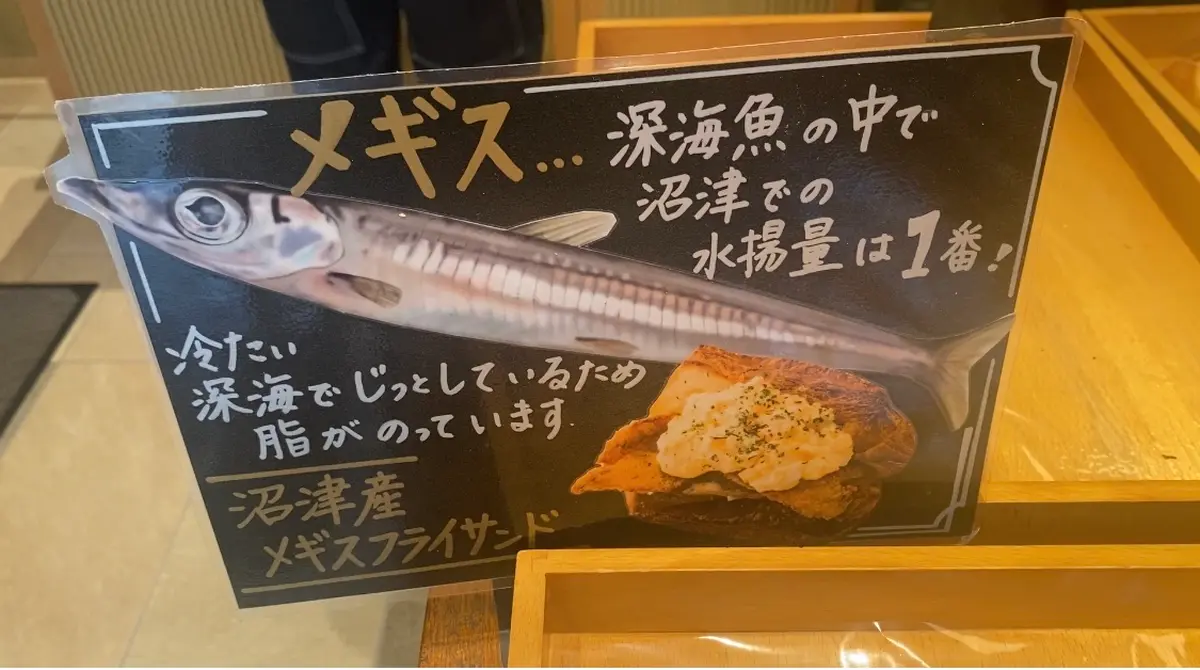 メギス…
深海魚の中で
沼津での
水揚量は1番!
冷たい
深海でじっとしているため
脂がのっています.
沼津産
メギスフライサンド